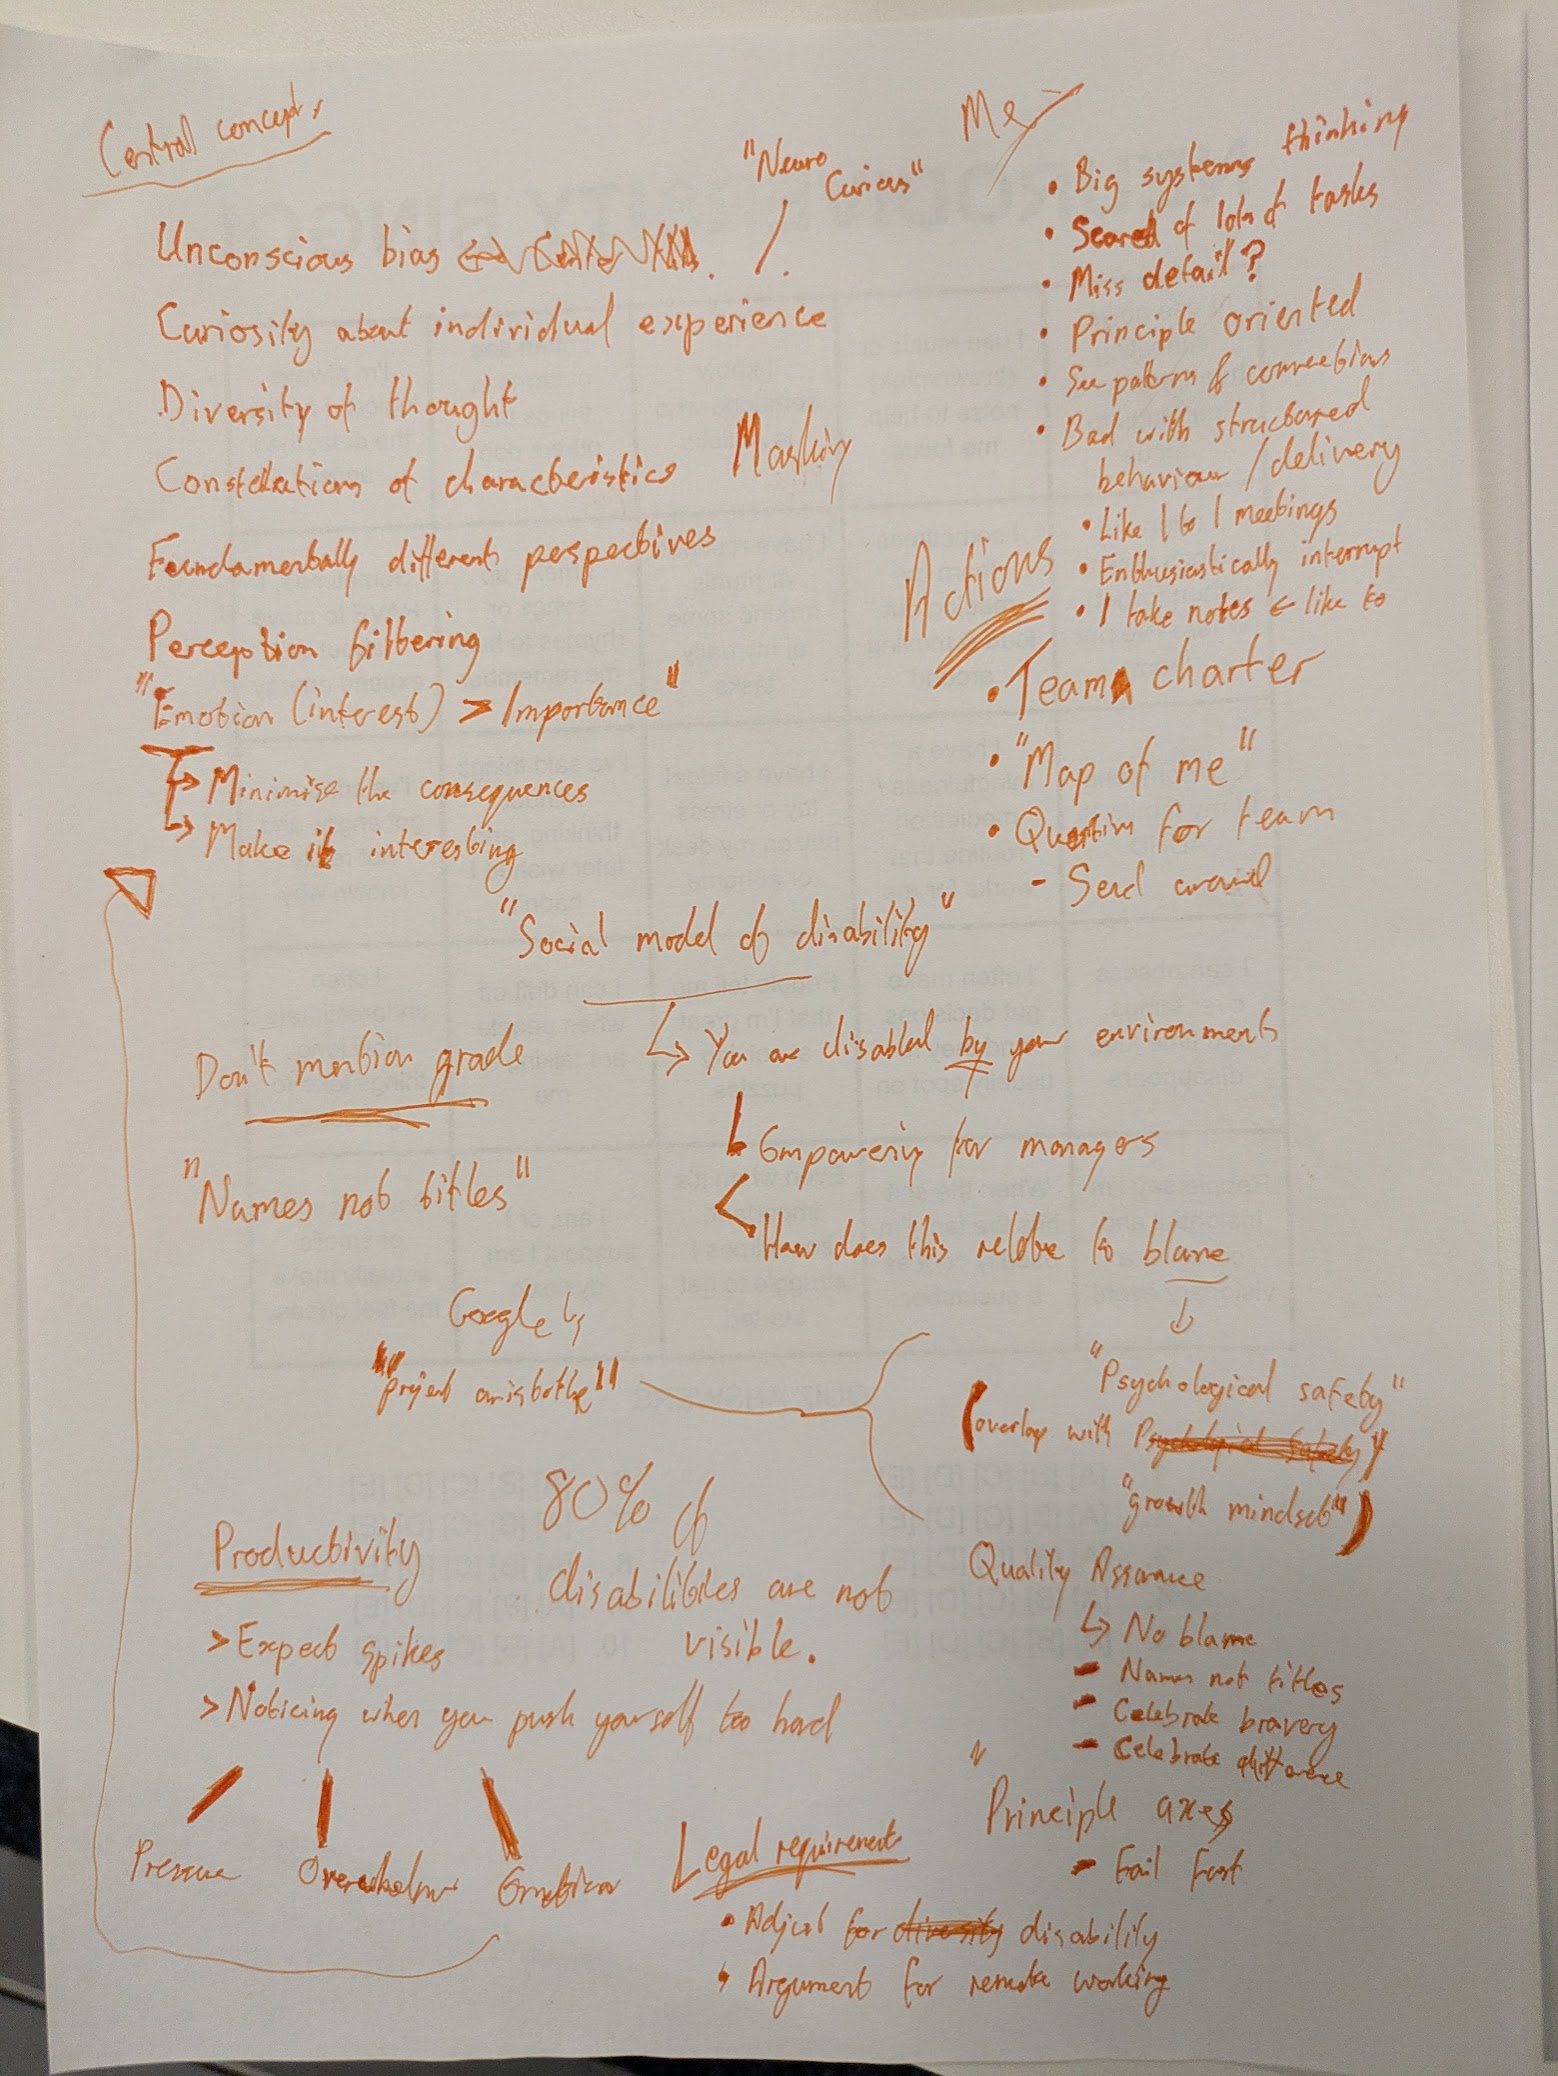 Central concepts
"Neuro
Curious"
Unconscious bias
Curiosity about individual experience
Diversity of thought
Constellations of characteristics
Masking
Fundamentally different perspectives
Perception filtering
"Emotion (interest) > Importance"
Minimise the consequences
Make it interesting
Me
• Big systems thinking
• Scared of lots of tasks
• Miss detail?
• Principle oriented
• See patterns & connections
• Bad with structured
behaviour / delivery
• Like 1 to 1 meetings
• Enthusiastically interrupt
• I take notes ← like to
Actions
• Team charter
• "Map of me"
• Question for team
- Send around
"Social model of disability"
↳ You are disabled by your environments
Empowering for managers
How does this relate to blame
Don't mention grade
"Names not titles"
Google ↳
"project aristotle"
"Psychological safety"
(overlap with Psychological Safety
"growth mindset")
80% of
disabilities are not
visible.
Productivity
> Expect spikes
> Noticing when you push yourself too hard
Pressure Overwhelm Emotion
Quality Assurance
↳ No blame
- Names not titles
- Celebrate bravery
- Celebrate difference
"Principle axes
- Fail fast
Legal requirement
• Adjust for diversity disability
• Argument for remote working